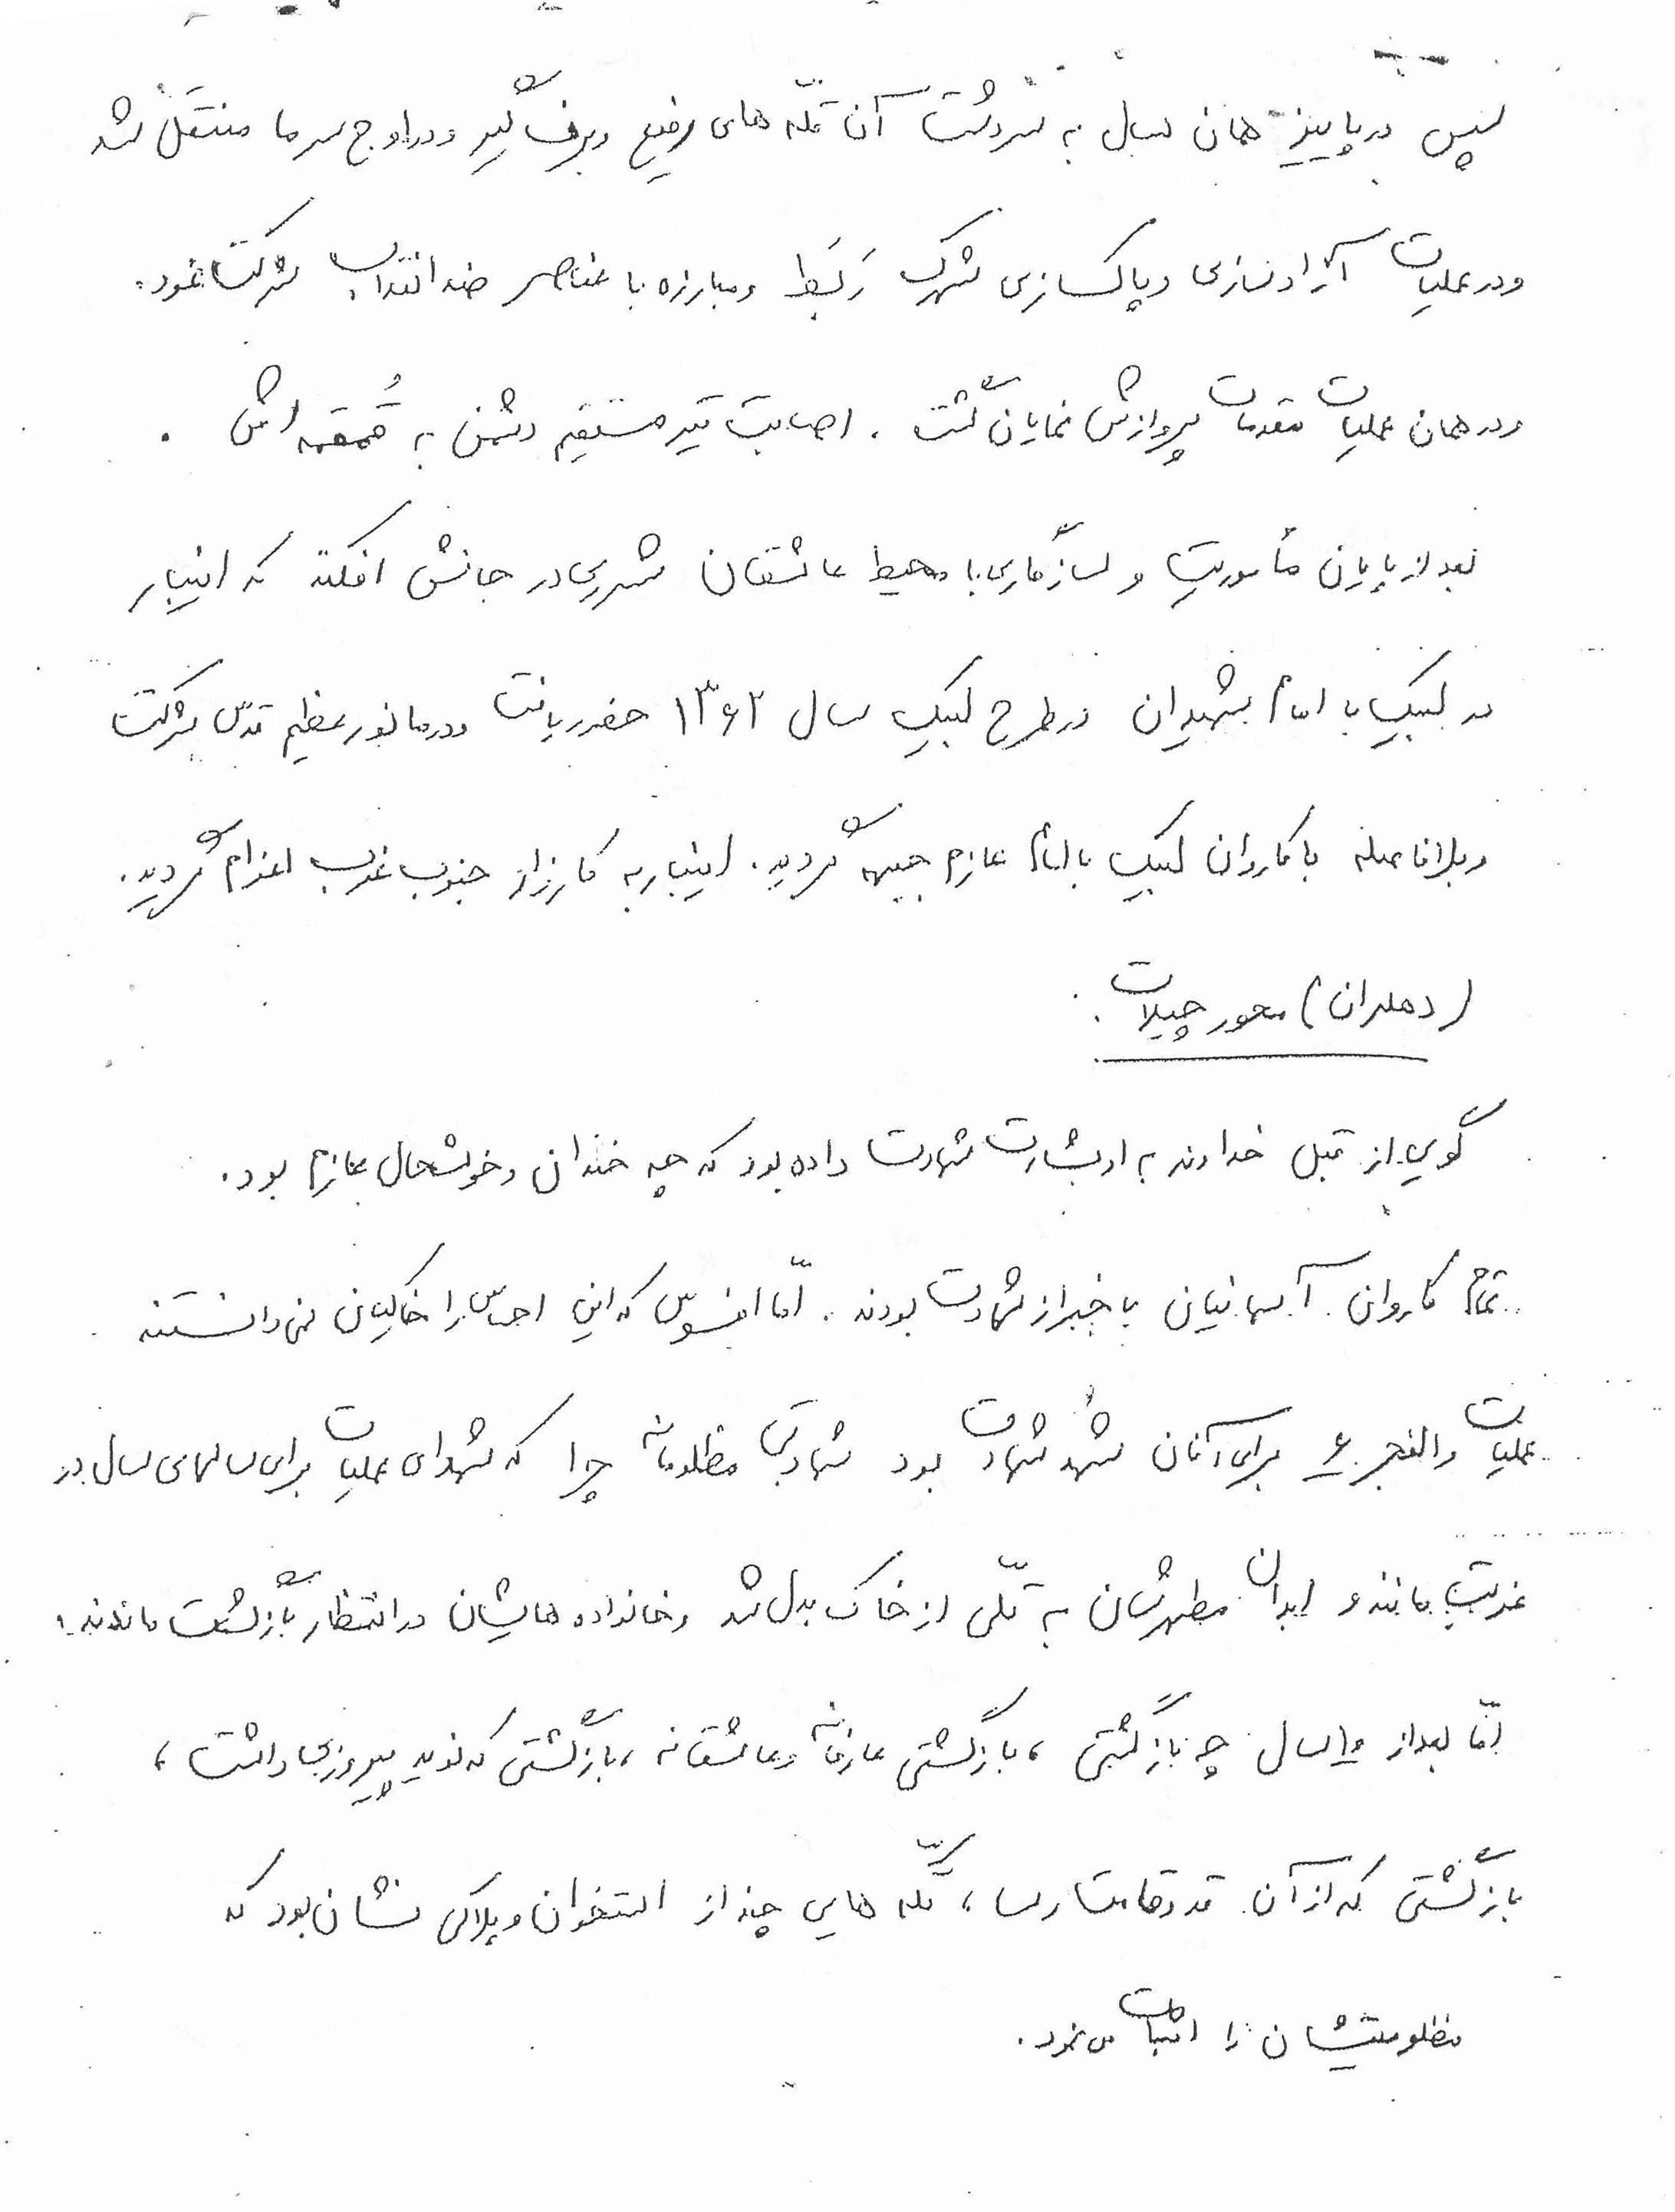 سپس در پاییز همان سال به سردشت آن قلّه های رفیع و برف گیر و در اوج سرما منتقل شد
و در عملیات آزادسازی و پاکسازی شهرک رَبَط و مبارزه با عناصر ضد انقلاب شرکت نمود.
و در همان عملیات مقدمات پروازش نمایان گشت . اصابت تیر مستقیم دشمن به قُمقمه اش .
بعد از پایان مأموریت و سازگاری با محیط عاشقان شرری در جانش افکند که اینبار
در لبیک یا امام شهیدان در طرح لبیک سال ۱۳۶۲ حضور یافت و در مانور عظیم قدس شرکت
و بلافاصله با کاروان لبیک یا امام عازم جبهه گردید. اینبار به کارزار جنوب غرب اعزام گردید.
(دهلران) محور چیلات .
گویی از قبل خداوند به او بشارت شهادت داده بود که چه خندان و خوشحال عازم بود.
تمام کاروان آسمانیان با خبر از شهادت بودند . امّا افسوس که این احساس را خاکیان نمی دانستند .
عملیات والفجر ۶ برای آنان شهد شهادت بود شهادتی مظلومانه چرا که شهدای عملیات برای سالهای سال در
غربت ماندند و ابدان مطهرشان به تلّی از خاک بدل شد و خانواده هایشان در انتظار بازگشت ماندند.
امّا بعد از ۱۰ سال چه بازگشتی ، بازگشتی عارفانه و عاشقانه ، بازگشتی که نوید پیروزی داشت ،
بازگشتی که از آن قد و قامت رسا ، تکّه هایی چند از استخوان و پلاکی نشان بود که
مظلومیتشان را اثبات می نمود .